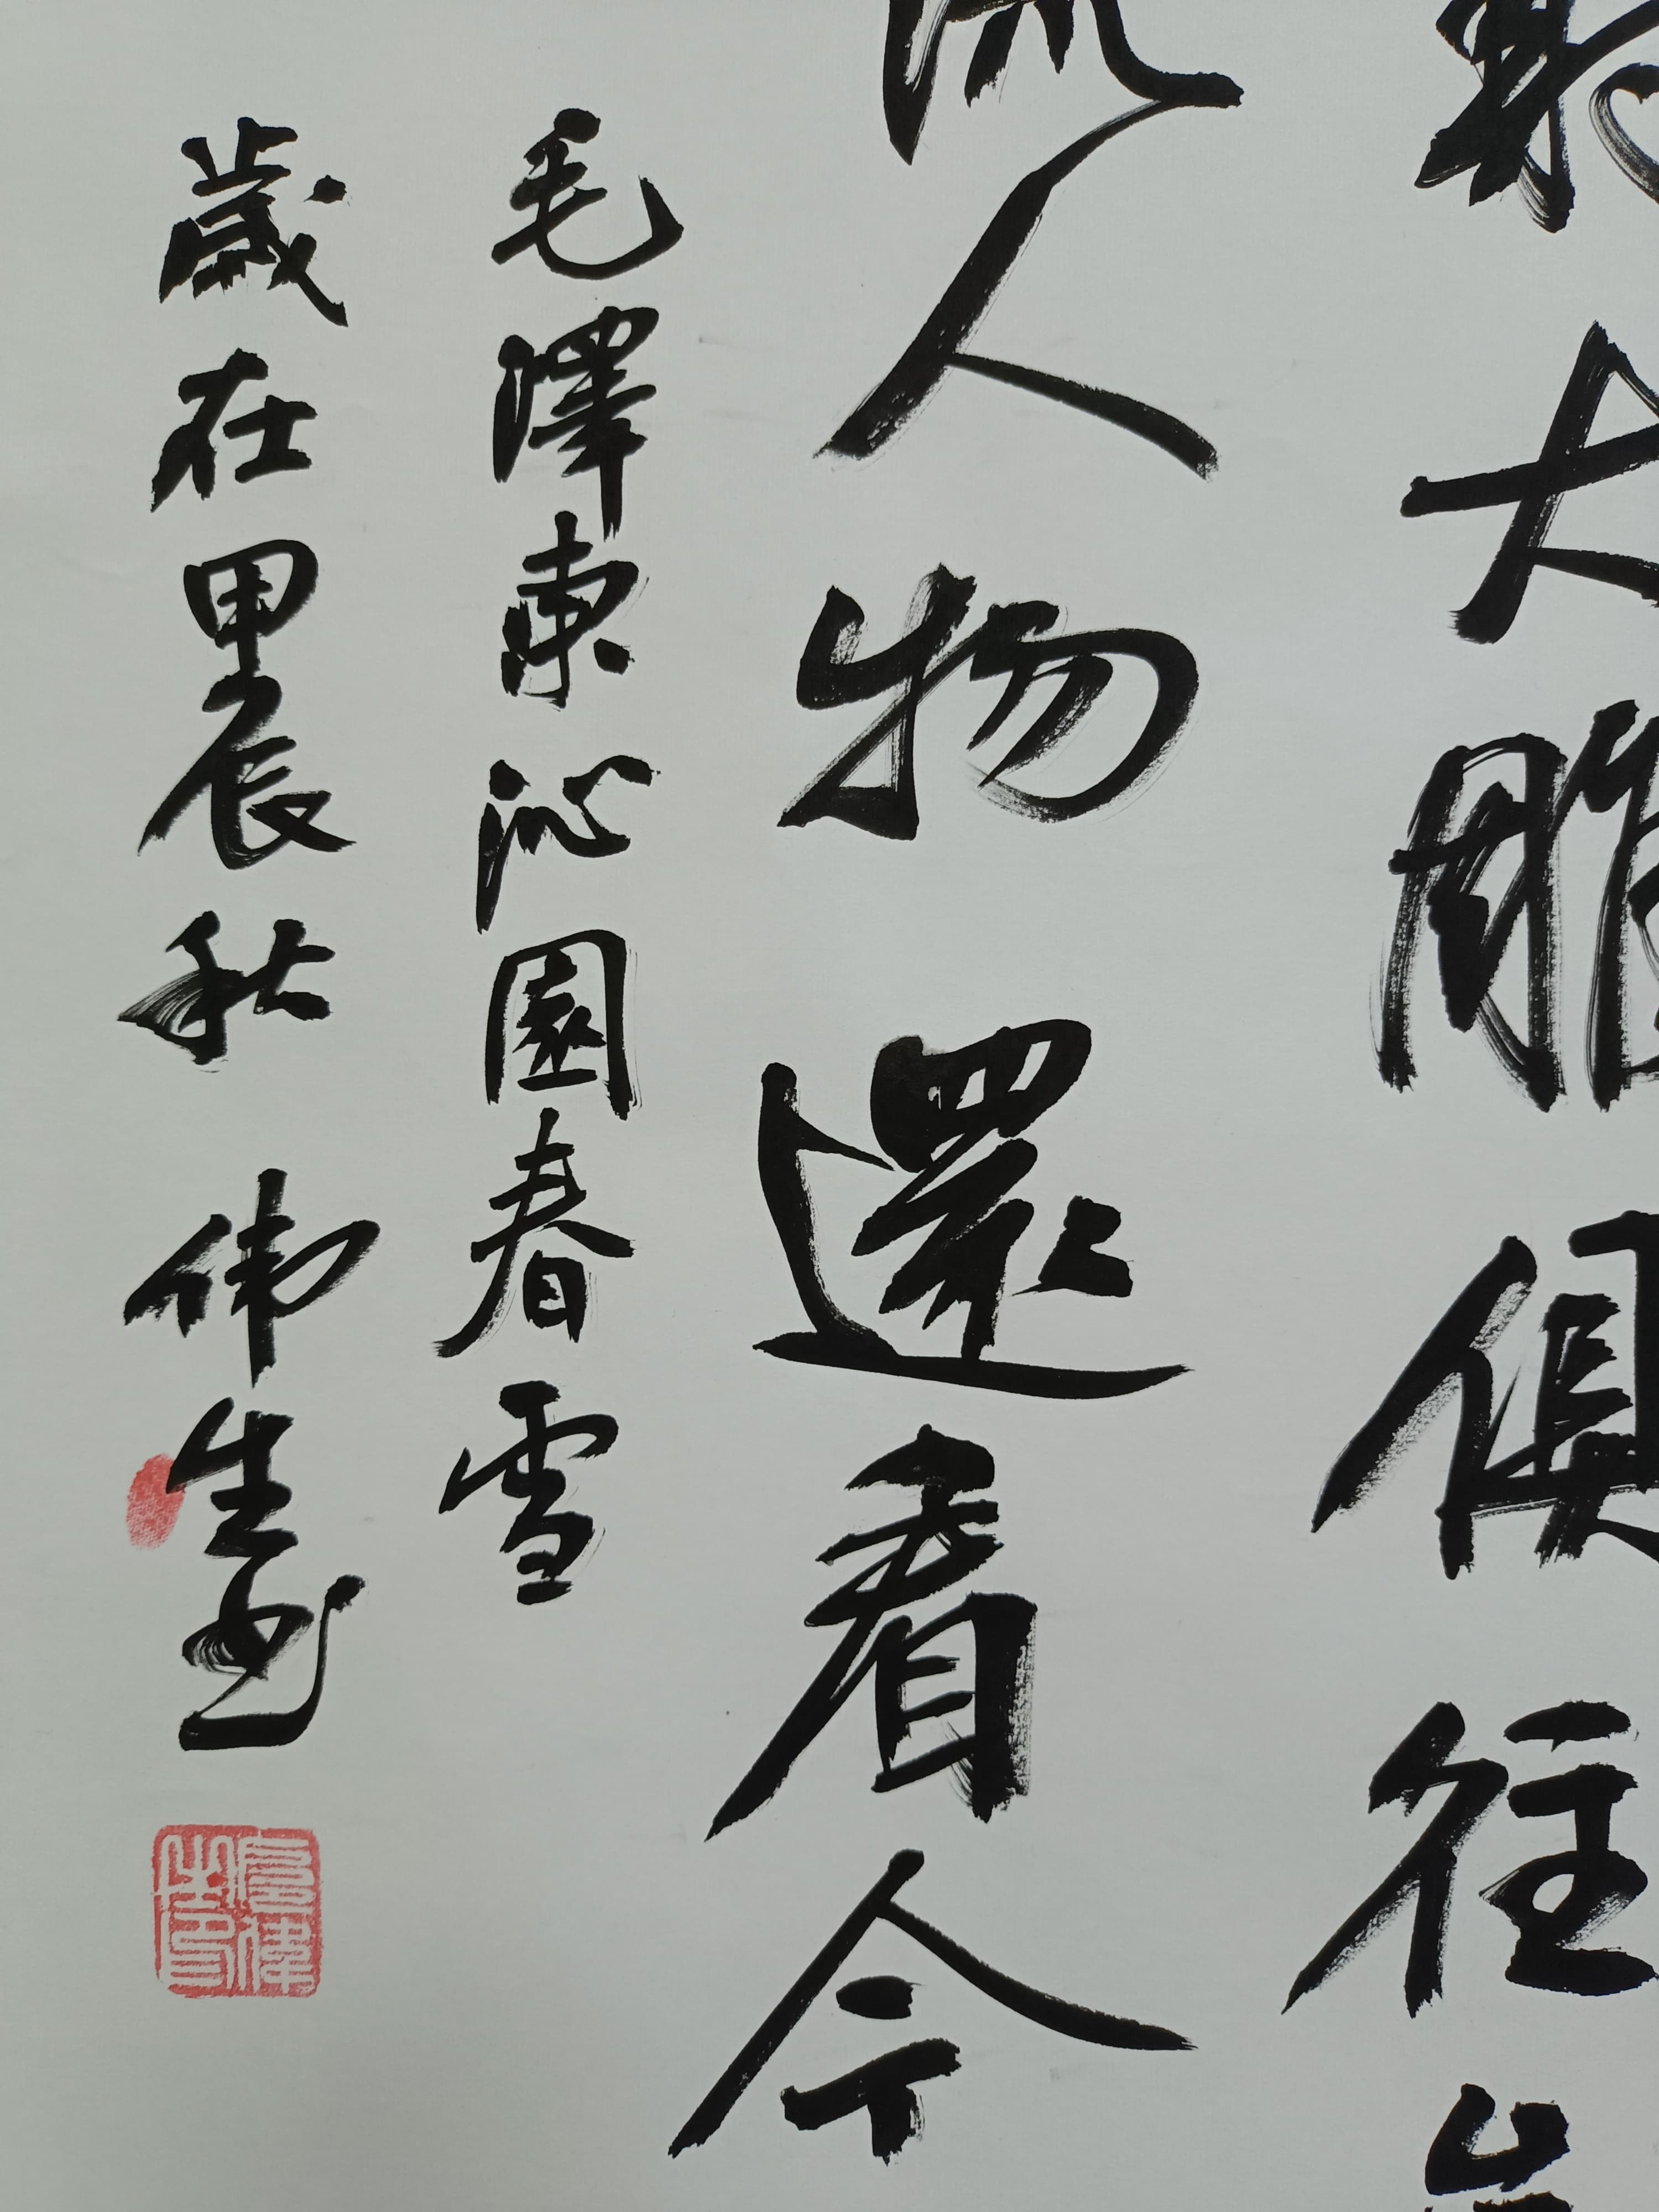 射大雕俱往矣
流人物還看今
毛澤東沁園春雪
歲在甲辰秋 伟生书